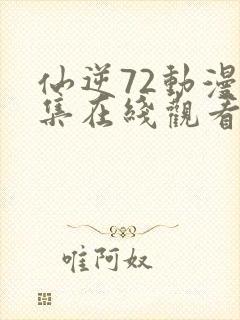 仙逆72動漫
集在綫觀看
唯阿奴